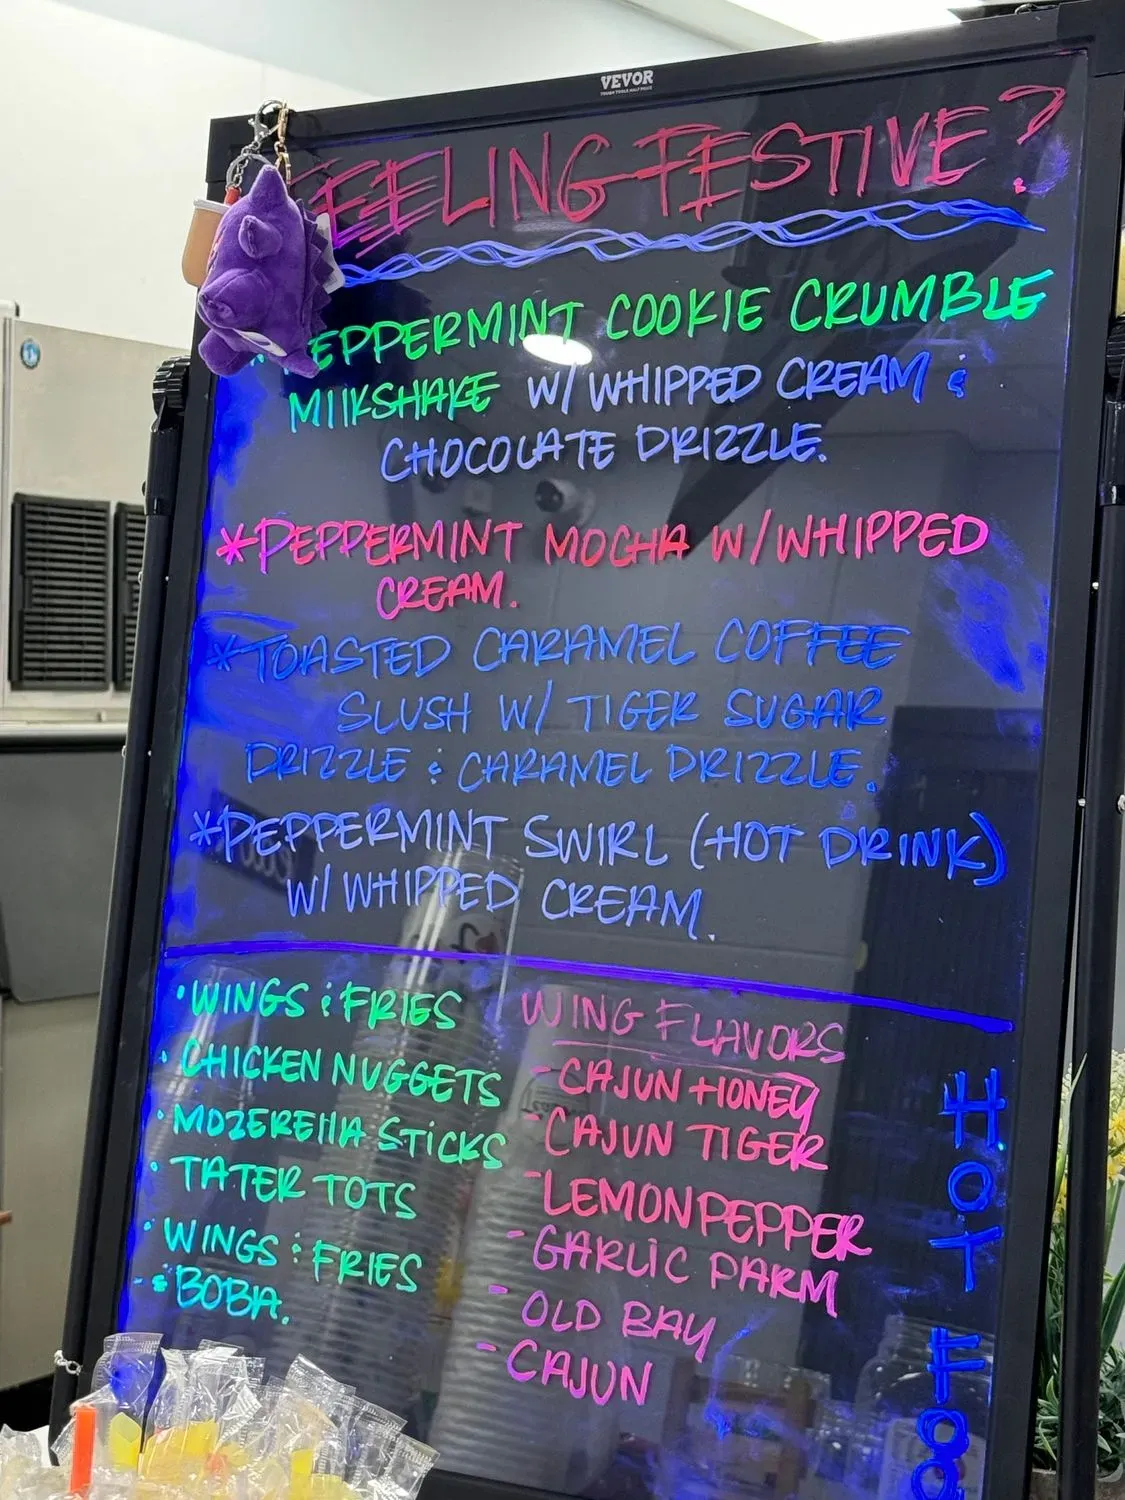 VEVOR
TOUGH TOOLS HALF PRICE
FEELING FESTIVE?
PEPPERMINT COOKIE CRUMBLE
MILKSHAKE W/ WHIPPED CREAM &
CHOCOLATE DRIZZLE.
*PEPPERMINT MOCHA W/WHIPPED
CREAM.
*TOASTED CARAMEL COFFEE
SLUSH W/ TIGER SUGAR
DRIZZLE & CARAMEL DRIZZLE.
*PEPPERMINT SWIRL (HOT DRINK)
W/ WHIPPED CREAM.
•WINGS & FRIES
•CHICKEN NUGGETS
•MOZERELLA STICKS
•TATER TOTS
•WINGS & FRIES
- & BOBA.
WING FLAVORS
-CAJUN HONEY
-CAJUN TIGER
-LEMON PEPPER
-GARLIC PARM
-OLD BAY
-CAJUN
HOT FOO